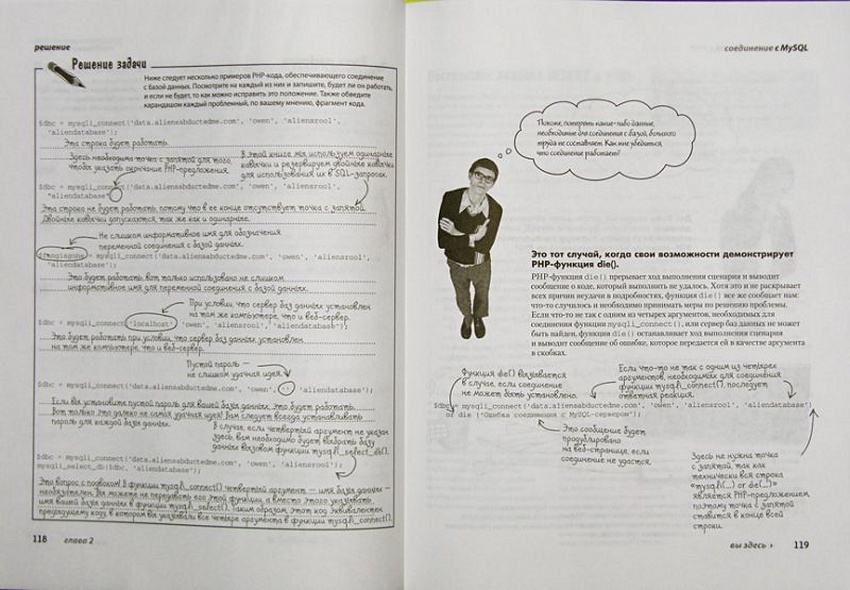 решение
Решение задачи
Ниже следует несколько примеров PHP-кода, обеспечивающего соединение
с базой данных. Посмотрите на каждый из них и запишите, будет ли он работать,
и если не будет, то как можно исправить это положение. Также обведите
карандашом каждый проблемный, по вашему мнению, фрагмент кода.
$dbc = mysqli_connect('data.aliensabductedme.com', 'owen', 'aliensrool',
'aliendatabase');
Эта строка будет работать.
Здесь необходима точка с запятой для того,
чтобы указать окончание PHP-предложения.
В этой книге мы используем одинарные
кавычки и резервируем двойные кавычки
для использования их в SQL-запросах.
$dbc = mysqli_connect('data.aliensabductedme.com', 'owen', 'aliensrool',
"aliendatabase")
Эта строка не будет работать, потому что в ее конце отсутствует точка с запятой.
Двойные кавычки допускаются, так же как и одинарные.
Не слишком информативное имя для обозначения
переменной соединения с базой данных.
= mysqli_connect('data.aliensabductedme.com', 'owen', 'aliensrool',
'aliendatabase');
Это будет работать, вот только использовано не слишком
информативное имя для переменной соединения с базой данных.
При условии, что сервер баз данных установлен
на том же компьютере, что и веб-сервер.
$dbc = mysqli_connect('localhost', 'owen', 'aliensrool', 'aliendatabase');
Это будет работать при условии, что сервер баз данных установлен
на том же компьютере, что и веб-сервер.
Пустой пароль —
не слишком удачная идея.
$dbc = mysqli_connect('data.aliensabductedme.com', 'owen', '', 'aliendatabase');
Если вы установите пустой пароль для вашей базы данных, это будет работать.
Вот только это далеко не самая удачная идея! Вам следует всегда устанавливать
пароль для каждой базы данных.
В случае, если четвертый аргумент не указан
здесь, вам необходимо будет выбрать базу
данных вызовом функции mysqli_select_db().
$dbc = mysqli_connect('data.aliensabductedme.com', 'owen', 'aliensrool');
mysqli_select_db($dbc, 'aliendatabase');
Это вопрос с подвохом! В функции mysqli_connect() четвертый аргумент — имя базы данных —
необязателен. Вы можете не передавать его этой функции, а вместо этого указывать
имя вашей базы данных в функции mysqli_select(). Таким образом, этот код эквивалентен
предыдущему коду, в котором вы указывали все четыре аргумента в функции mysqli_connect().
118 глава 2
соединение с MySQL
Похоже, поверить какие-либо данные,
необходимые для соединения с базой, большого
труда не составляет. Как мне убедиться,
что соединение работает?
Это тот случай, когда свои возможности демонстрирует
PHP-функция die().
PHP-функция die() прерывает ход выполнения сценария и выводит
сообщение о коде, который выполнить не удалось. Хотя это и не раскрывает
всех причин неудачи в подробностях, функция die() все же сообщает нам:
что-то случилось и необходимо принимать меры по решению проблемы.
Если что-то не так с одним из четырех аргументов, необходимых для
соединения функции mysqli_connect(), или сервер баз данных не может
быть найден, функция die() останавливает ход выполнения сценария
и выводит сообщение об ошибке, которое передается ей в качестве аргумента
в скобках.
Функция die() вызывается
в случае, если соединение
не может быть установлено.
Если что-то не так с одним из четырех
аргументов, необходимых для соединения
функции mysqli_connect(), последует
ответная реакция.
$dbc = mysqli_connect('data.aliensabductedme.com', 'owen', 'aliensrool', 'aliendatabase')
or die ('Ошибка соединения с MySQL-сервером');
Это сообщение будет
продублировано
на веб-странице, если
соединение не удастся.
Здесь не нужна точка
с запятой, так как
технически вся строка
«mysqli(...) or die(...)»
является PHP-предложением,
поэтому точка с запятой
ставится в конце всей
строки.
вы здесь › 119